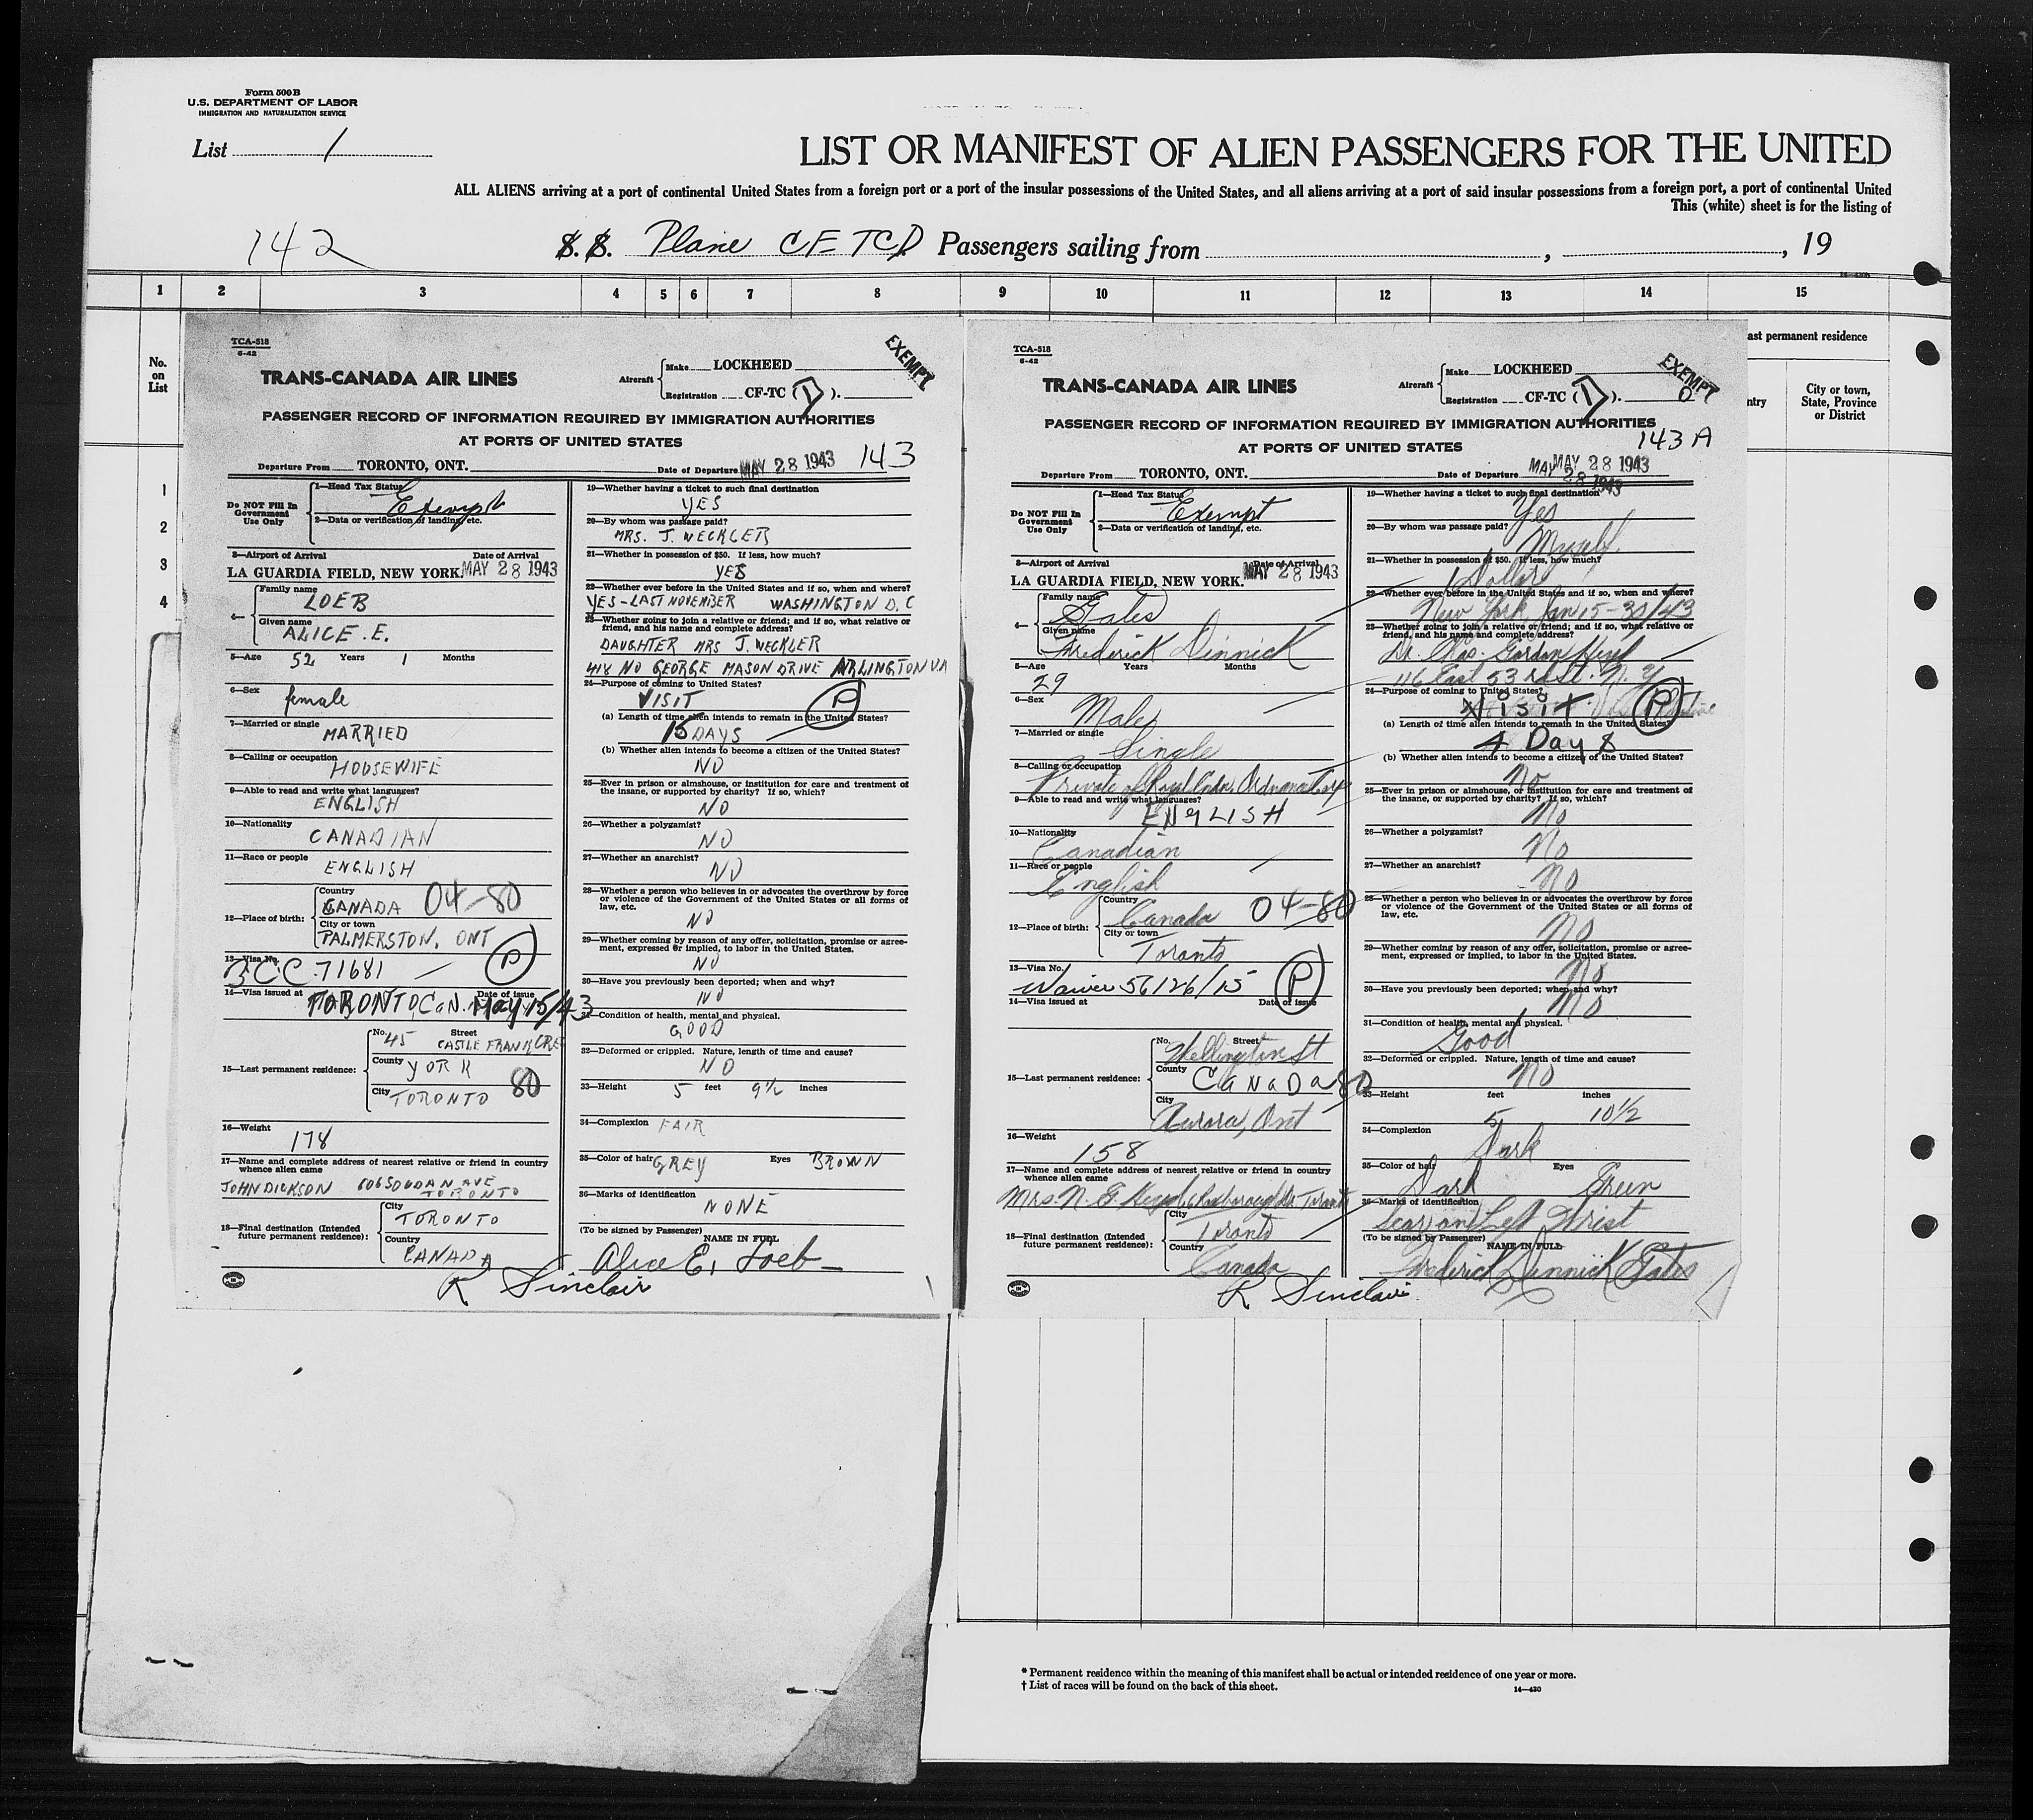 Form 500 B
U.S. DEPARTMENT OF LABOR
IMMIGRATION AND NATURALIZATION SERVICE
List 1
LIST OR MANIFEST OF ALIEN PASSENGERS FOR THE UNITED
ALL ALIENS arriving at a port of continental United States from a foreign port or a port of the insular possessions of the United States, and all aliens arriving at a port of said insular possessions from a foreign port, a port of continental United
This (white) sheet is for the listing of
142 S. S. Plane CF TCD Passengers sailing from , , 19
1 2 3 4 5 6 7 8 9 10 11 12 13 14 15
No. on List
1
2
3
4
ast permanent residence
ntry
City or town, State, Province or District
TCA-518
6-42
EXEMPT
TRANS-CANADA AIR LINES
Aircraft Make LOCKHEED
Registration CF-TC (D).
PASSENGER RECORD OF INFORMATION REQUIRED BY IMMIGRATION AUTHORITIES
AT PORTS OF UNITED STATES
143
Departure From TORONTO, ONT. Date of Departure MAY 28 1943
Do NOT Fill In Government Use Only
1—Head Tax Status Exempt
2—Data or verification of landing, etc.
3—Airport of Arrival Date of Arrival
LA GUARDIA FIELD, NEW YORK. MAY 28 1943
4— Family name LOEB
Given name ALICE. E.
5—Age 52 Years 1 Months
6—Sex female
7—Married or single MARRIED
8—Calling or occupation HOUSEWIFE
9—Able to read and write what languages? ENGLISH
10—Nationality CANADIAN
11—Race or people ENGLISH
12—Place of birth: Country CANADA 04-80
City or town PALMERSTON, ONT
13—Visa No. 3CC 71681 P
14—Visa issued at TORONTO, CAN. Date of issue May 15/43
15—Last permanent residence: No. 45 Street CASTLE FRANK CRE
County YORK
City TORONTO 80
16—Weight 178
17—Name and complete address of nearest relative or friend in country whence alien came
JOHN DICKSON 606 SOUDAN AVE TORONTO
18—Final destination (Intended future permanent residence): City TORONTO
Country CANADA
R Sinclair
19—Whether having a ticket to such final destination
YES
20—By whom was passage paid?
MRS. J. WECKLER
21—Whether in possession of $50. If less, how much?
YES
22—Whether ever before in the United States and if so, when and where?
YES - LAST NOVEMBER WASHINGTON D. C
23—Whether going to join a relative or friend; and if so, what relative or friend, and his name and complete address?
DAUGHTER MRS J. WECKLER
418 NO GEORGE MASON DRIVE ARLINGTON VA
24—Purpose of coming to United States?
VISIT P
(a) Length of time alien intends to remain in the United States?
15 DAYS
(b) Whether alien intends to become a citizen of the United States?
NO
25—Ever in prison or almshouse, or institution for care and treatment of the insane, or supported by charity? If so, which?
NO
26—Whether a polygamist?
NO
27—Whether an anarchist?
NO
28—Whether a person who believes in or advocates the overthrow by force or violence of the Government of the United States or all forms of law, etc.
NO
29—Whether coming by reason of any offer, solicitation, promise or agreement, expressed or implied, to labor in the United States.
NO
30—Have you previously been deported; when and why?
NO
31—Condition of health, mental and physical.
GOOD
32—Deformed or crippled. Nature, length of time and cause?
NO
33—Height 5 feet 9½ inches
34—Complexion FAIR
35—Color of hair GREY Eyes BROWN
36—Marks of identification NONE
(To be signed by Passenger) NAME IN FULL
Alice E. Loeb
TCA-518
6-42
EXEMPT
TRANS-CANADA AIR LINES
Aircraft Make LOCKHEED
Registration CF-TC (D). D
PASSENGER RECORD OF INFORMATION REQUIRED BY IMMIGRATION AUTHORITIES
AT PORTS OF UNITED STATES
143 A
Departure From TORONTO, ONT. Date of Departure MAY 28 1943
MAY 28 1943
Do NOT Fill In Government Use Only
1—Head Tax Status Exempt
2—Data or verification of landing, etc.
3—Airport of Arrival Date of Arrival
LA GUARDIA FIELD, NEW YORK. MAY 28 1943
4— Family name Gates
Given name Frederick Dinnick
5—Age 29 Years Months
6—Sex Male
7—Married or single Single
8—Calling or occupation Private of Royal Cdn. Ordnance Corp
9—Able to read and write what languages? ENGLISH
10—Nationality Canadian
11—Race or people English
12—Place of birth: Country Canada 04-80
City or town Toronto
13—Visa No. Waiver 56126/15 P
14—Visa issued at Date of issue
15—Last permanent residence: No. Street Wellington St
County CANADA 80
City Aurora, Ont
16—Weight 158
17—Name and complete address of nearest relative or friend in country whence alien came
Mrs. N. G. Toronto
18—Final destination (Intended future permanent residence): City Toronto
Country Canada
R Sinclair
19—Whether having a ticket to such final destination
Yes
20—By whom was passage paid?
Myself
21—Whether in possession of $50. If less, how much?
1 Dollar
22—Whether ever before in the United States and if so, when and where?
New York Jan 15-30/43
23—Whether going to join a relative or friend; and if so, what relative or friend, and his name and complete address?
Dr. Chas. Gordon
116 East 53rd St. N. Y
24—Purpose of coming to United States?
Visit P
(a) Length of time alien intends to remain in the United States?
4 Days
(b) Whether alien intends to become a citizen of the United States?
No
25—Ever in prison or almshouse, or institution for care and treatment of the insane, or supported by charity? If so, which?
No
26—Whether a polygamist?
No
27—Whether an anarchist?
No
28—Whether a person who believes in or advocates the overthrow by force or violence of the Government of the United States or all forms of law, etc.
No
29—Whether coming by reason of any offer, solicitation, promise or agreement, expressed or implied, to labor in the United States.
No
30—Have you previously been deported; when and why?
No
31—Condition of health, mental and physical.
Good
32—Deformed or crippled. Nature, length of time and cause?
No
33—Height 5 feet 10½ inches
34—Complexion Dark
35—Color of hair Dark Eyes Green
36—Marks of identification
Scar on Left Wrist
(To be signed by Passenger) NAME IN FULL
Frederick Dinnick Gates
* Permanent residence within the meaning of this manifest shall be actual or intended residence of one year or more.
† List of races will be found on the back of this sheet.
14—430